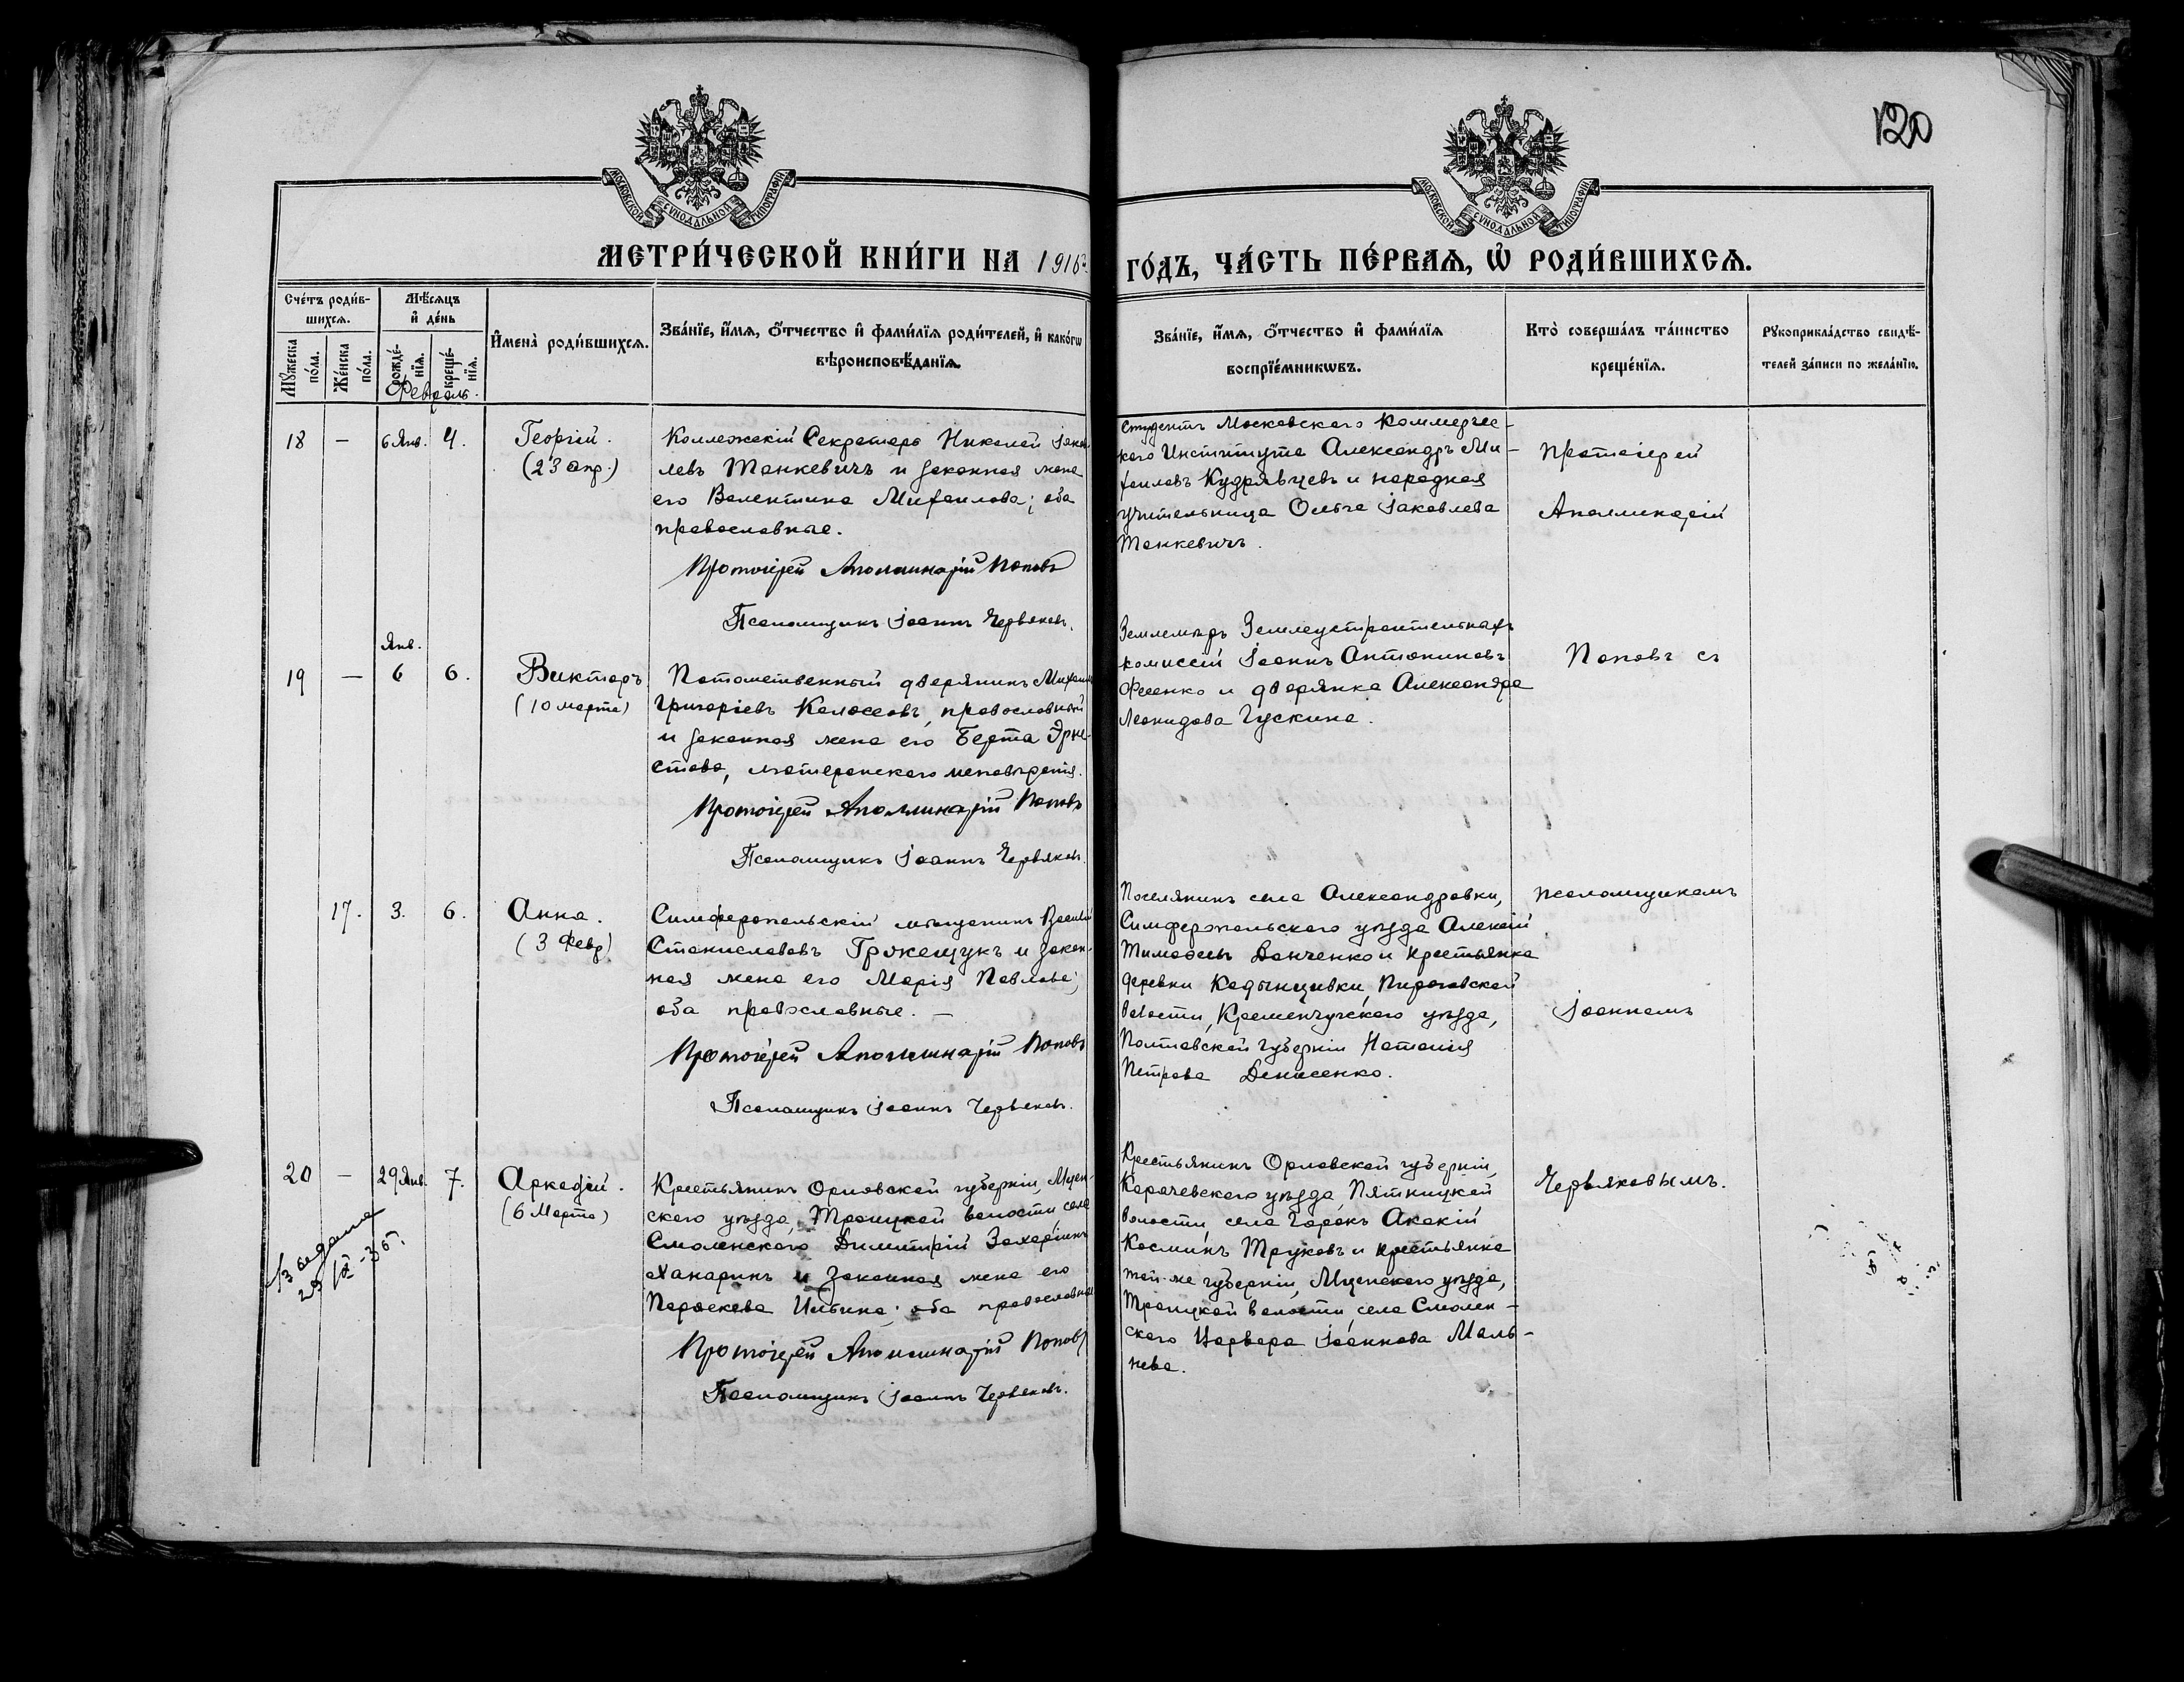 120
МОСКОВСКОЙ СѴНОДАЛЬНОЙ ТИПОГРАФІИ
МОСКОВСКОЙ СѴНОДАЛЬНОЙ ТИПОГРАФІИ
МЕТРИ́ЧЕСКОЙ КНИ́ГИ НА 1916 г.
ГО́ДЪ, ЧА́СТЬ ПЕ́РВАѦ, Ѡ҆ РОДИ́ВШИХСѦ.
Сче́тъ роди́в-
шихсѧ.
Мꙋ́жеска по́ла.
Же́нска по́ла.
Мѣ́сѧцъ
и҆ де́нь
рожде́-нїѧ.
креще́-нїѧ.
Февраль.
И҆мена̀ роди́вшихсѧ.
Зва́нїе, и҆́мѧ, ѻ҆́тчество и҆ фами́лїѧ роди́телей, и҆ како́гѡ
вѣроисповѣ́данїѧ.
Зва́нїе, и҆́мѧ, ѻ҆́тчество и҆ фами́лїѧ
воспрїе́мникѡвъ.
Кто̀ соверша́лъ та́инство
креще́нїѧ.
Рꙋкоприкла́дство свидѣ́-
телей за́писи по жела́нїю.
18 — 6 Янв. 4.
Георгій.
(23 апр.)
Коллежскій Секретарь Николай Іаков-
левъ Танкевичъ и законная жена
его Валентина Михаилова; оба
православные.
Протоіерей Аполлинарій Поповъ
Псаломщикъ Іоаннъ Червяковъ.
Студентъ Московскаго Коммерчес-
каго Института Александръ Ми-
хаиловъ Кудрявцевъ и народная
учительница Ольга Іаковлева
Танкевичъ.
Протоіерей
Аполлинарій
Янв.
19 — 6 6.
Викторъ
(10 марта)
Потомственный дворянинъ Михаилъ
Григоріевъ Колосовъ, православный
и законная жена его Берта Эрне-
стова, лютеранскаго исповѣданія.
Протоіерей Аполлинарій Поповъ
Псаломщикъ Іоаннъ Червяковъ.
Землемѣръ Землеустроительныхъ
комиссій Іоаннъ Антониновъ
Фесенко и дворянка Александра
Леонидова Гускина.
Поповъ съ
17. 3. 6.
Анна.
(3 Февр)
Симферопольскій мѣщанинъ Василій
Станиславовъ Гржещукъ и закон-
ная жена его Марія Павлова;
оба православные. —
Протоіерей Аполлинарій Поповъ
Псаломщикъ Іоаннъ Червяковъ.
Поселянинъ села Александровки,
Симферопольскаго уѣзда Алексій
Тимоѳеевъ Данченко и крестьянка
деревни Кадынцивки, Пироговской
волости, Кременчугскаго уѣзда,
Полтавской губерніи Наталія
Петрова Денисенко.
псаломщикомъ
Іоанномъ
20 — 29 Янв. 7.
Аркадій.
(6 Марта)
Крестьянинъ Орловской губерніи, Мцен-
скаго уѣзда, Троицкой волости села
Смоленскаго Димитрій Захаріинъ
Ханаринъ и законная жена его
Параскева Ильина; оба православные
Протоіерей Аполлинарій Поповъ
Псаломщикъ Іоаннъ Червяковъ.
Крестьянинъ Орловской губерніи,
Карачевскаго уѣзда Пятницкой
волости, села Горокъ Акакій
Космин Труковъ и крестьянка
той-же губерніи, Мценскаго уѣзда,
Троицкой волости, села Смолен-
скаго Варвара Іоаннова Маль-
нева.
Червяковымъ.